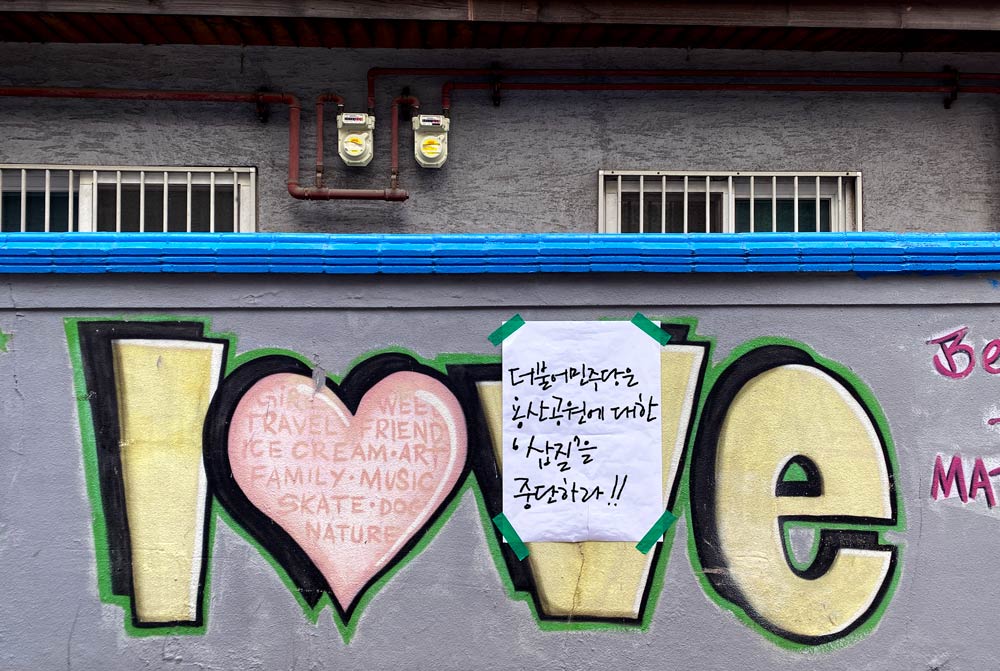 love
TRAVEL FRIEND
ICE CREAM·ART
FAMILY·MUSIC
SKATE·DOG
NATURE
더불어민주당은
용산공원에 대한
'삽질'을
중단하라!!
Be
MAT